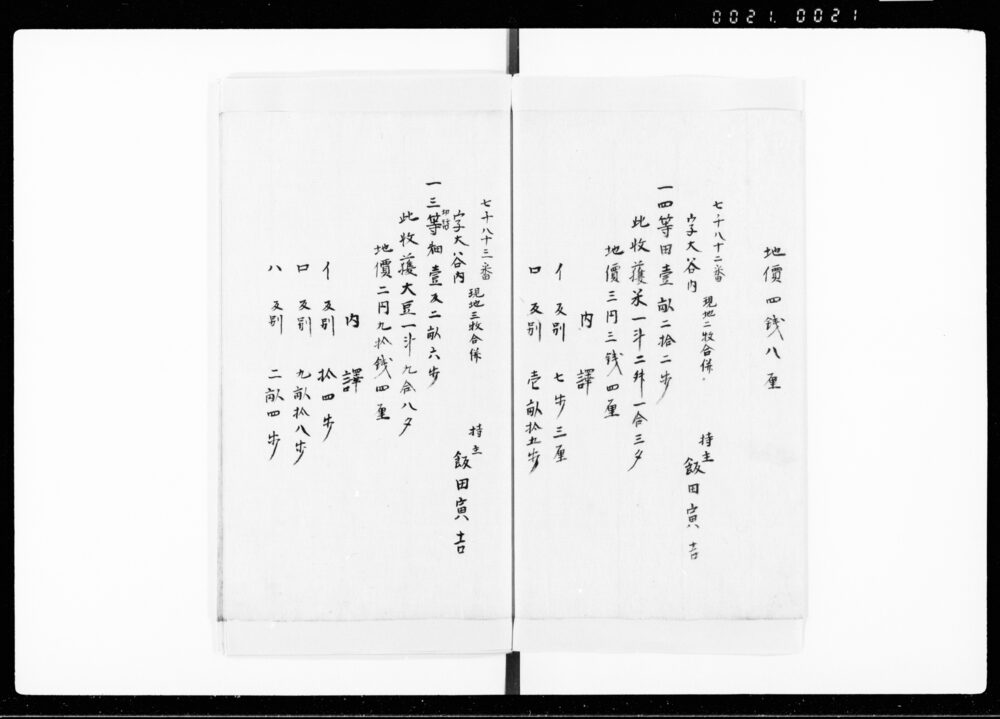 0021. 0021
地價四銭八厘
七千八十二番
字大谷内　現地二牧合併
持主　飯田寅吉
一四等田壹畝二拾二歩
此收穫米一斗二舛一合三夕
地價三円三銭四厘
内譯
イ　反別　七歩三厘
ロ　反別　壱畝拾五歩
七千八十三番
字大谷内　現地三牧合併
持主　飯田寅吉
一三等畑壹反二畝六歩
此收穫大豆一斗九合八夕
地價二円九拾銭四厘
内譯
イ　反別　拾四歩
ロ　反別　九畝拾八歩
ハ　反別　二畝四歩